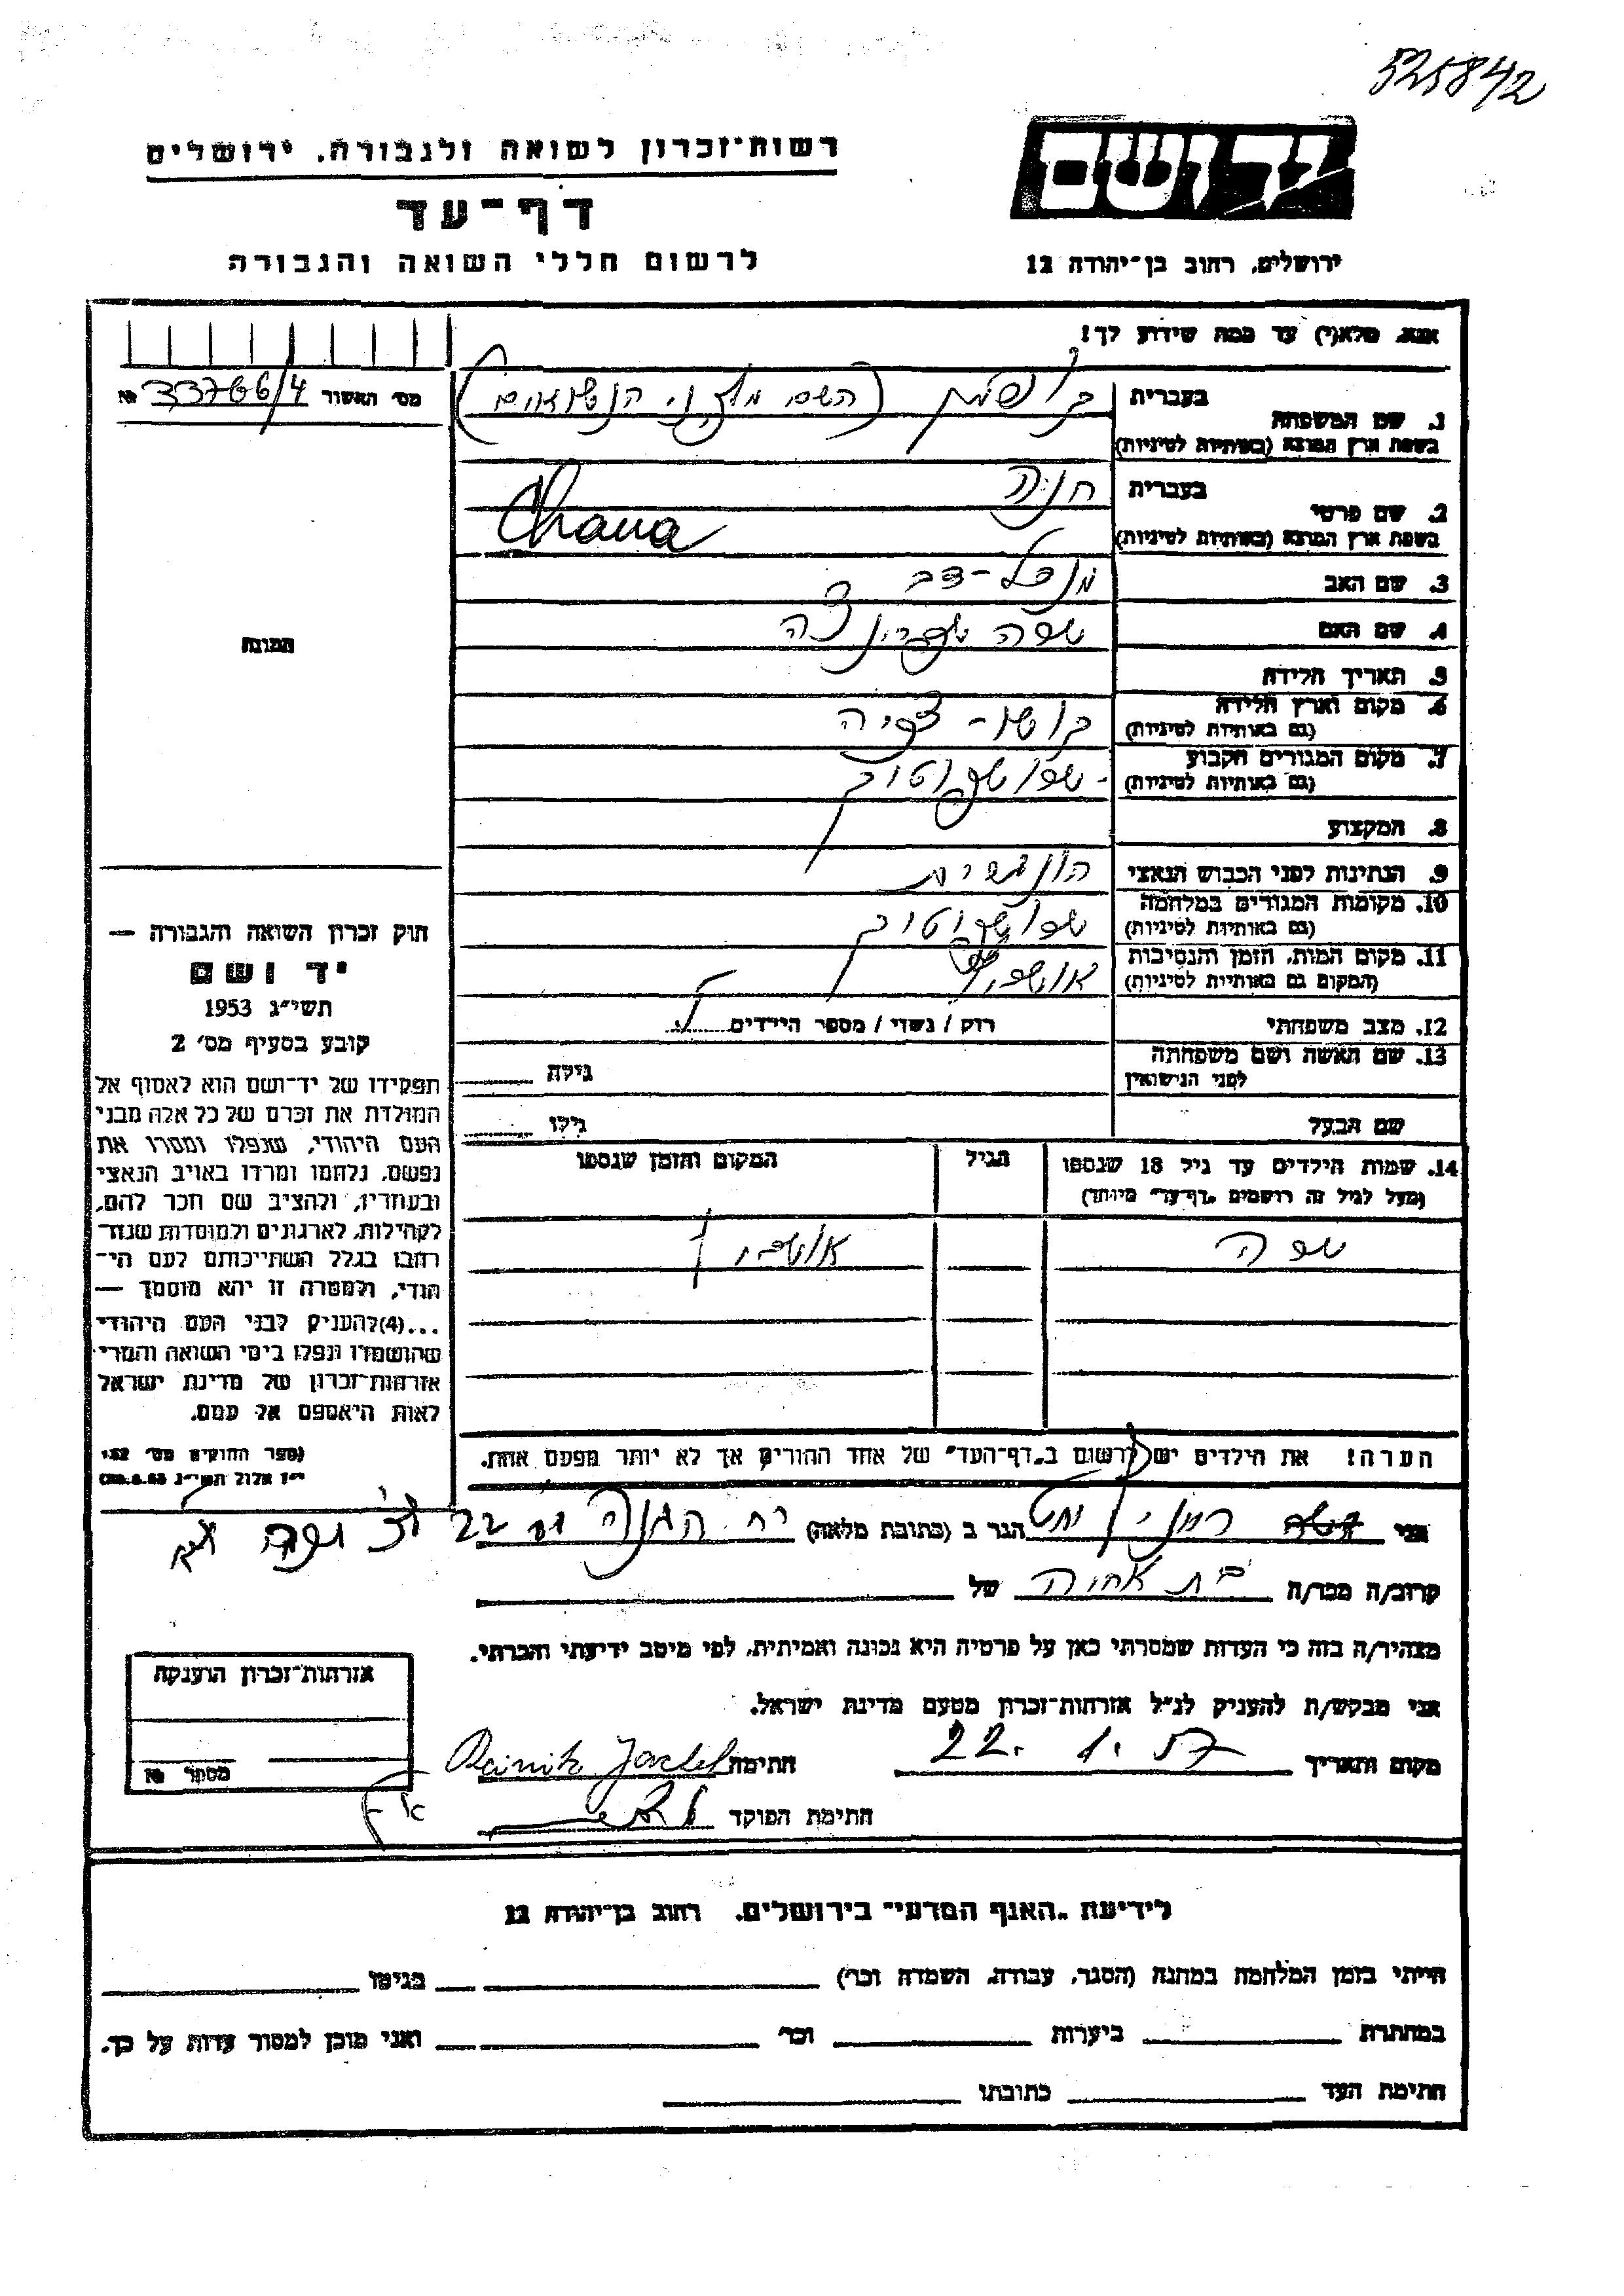 525842
יד ושם
רשות־זכרון לשואה ולגבורה, ירושלים
דף־עד
לרשום חללי השואה והגבורה
ירושלים, רחוב בן־יהודה 12
אנא, מלא(י) עד כמה שידוע לך!
מס׳ האשור 33766/4 №
תמונה
1. שם המשפחה
בעברית
(השם מלפני הנשואים)
בשפת ארץ המוצא (באותיות לטיניות)
2. שם פרטי
בעברית חנה
בשפת ארץ המוצא (באותיות לטיניות) Chana
3. שם האב מנדל-דב
4. שם האם שרה
5. תאריך הלידה
6. מקום וארץ הלידה
(גם באותיות לטיניות)
7. מקום המגורים הקבוע
(גם באותיות לטיניות)
8. המקצוע
9. הנתינות לפני הכבוש הנאצי הונגרית
10. מקומות המגורים במלחמה
(גם באותיות לטיניות)
11. מקום המות, הזמן והנסיבות
(המקום גם באותיות לטיניות)
12. מצב משפחתי רווק / נשוי / מספר הילדים
13. שם האשה ושם משפחתה
לפני הנישואין
גילה
שם הבעל גילו
14. שמות הילדים עד גיל 18 שנספו הגיל המקום והזמן שנספו
(מעל לגיל זה רושמים „דף־עד״ מיוחד)
שרה
הערה! את הילדים יש לרשום ב„דף־העד״ של אחד ההורים אך לא יותר מפעם אחת.
חוק זכרון השואה והגבורה —
יד ושם
תשי״ג 1953
קובע בסעיף מס׳ 2
תפקידו של יד־ושם הוא לאסוף אל
המולדת את זכרם של כל אלה מבני
העם היהודי, שנפלו ומסרו את
נפשם, נלחמו ומרדו באויב הנאצי
ובעוזריו, ולהציב שם וזכר להם,
לקהילות, לארגונים ולמוסדות שנח־
רבו בגלל השתייכותם לעם הי־
הודי, ולמטרה זו יהא מוסמך —
...(4) להעניק לבני העם היהודי
שהושמדו ונפלו בימי השואה והמרי
אזרחות־זכרון של מדינת ישראל
לאות היאספם אל עמם.
(ספר החוקים מס׳ 132,
י״ז אלול תשי״ג 28.8.53)
אני הגר ב (כתובת מלאה) רח. ההגנה 22
קרוב/ה מכר/ה בת אחיה של
מצהיר/ה בזה כי העדות שמסרתי כאן על פרטיה היא נכונה ואמיתית, לפי מיטב ידיעתי והכרתי.
אני מבקש/ת להעניק לנ״ל אזרחות־זכרון מטעם מדינת ישראל.
מקום ותאריך 22. 1. 57 חתימה
חתימת הפוקד
אזרחות־זכרון הוענקה
מספר №
לידיעת „האגף המדעי״ בירושלים, רחוב בן־יהודה 12
הייתי בזמן המלחמה במחנה (הסגר, עבודה, השמדה וכו׳) בגיטו
במחתרת ביערות וכו׳ ואני מוכן למסור עדות על כך.
חתימת העד כתובתו